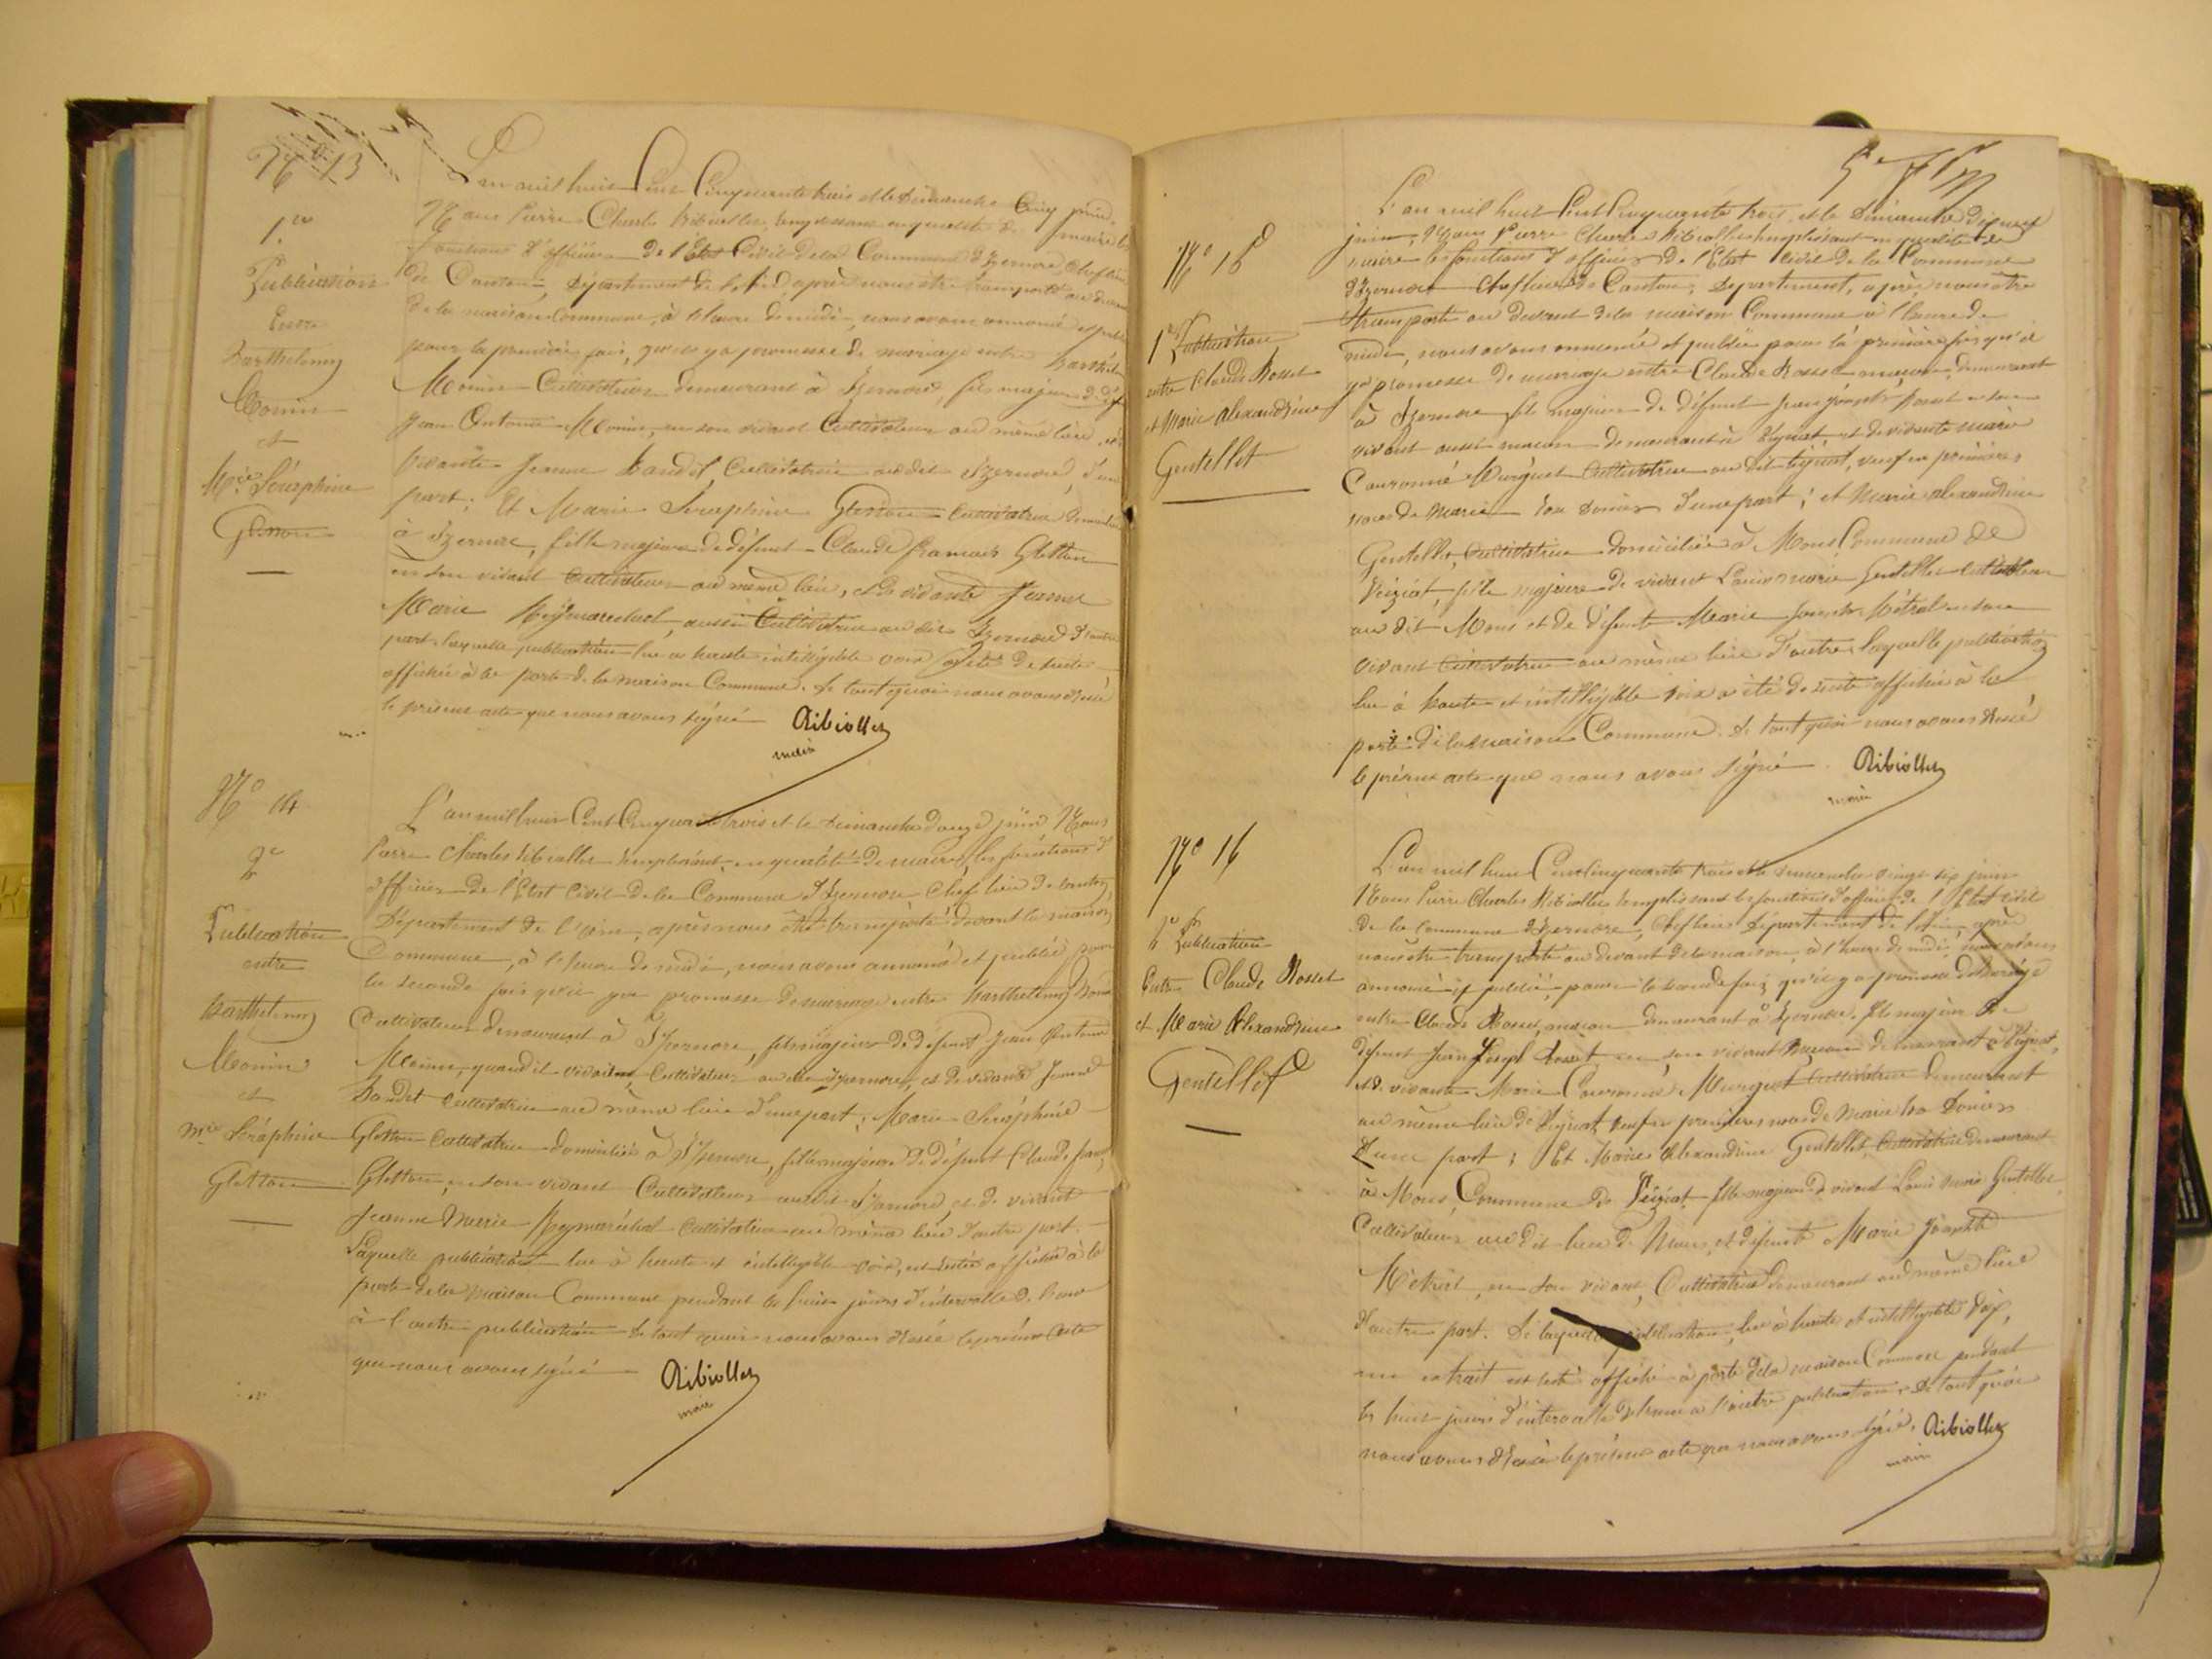 N° 13
1re
Publication
Entre
Barthelemy
Monin
et
Mie Séraphine
Gletton
L'an mil huit Cent Cinquante trois et le Dimanche Cinq juin,
Nous Pierre Charles Ribiollet, remplissant en qualité de maire les
fonctions d'officier de l'Etat Civil de la Commune d'Izernore Chef lieu
de Canton, Département de l'Ain, après nous être transporté au devant
de la maison Commune, à l'heure de midi, nous avons annoncé et publié
pour la première fois, qu'il y a promesse de mariage entre Barthélemy
Monin Cultivateur demeurant à Izernore, fils majeur de défunt
Jean Antoine Monin, en son vivant Cultivateur au même lieu, et de
vivante Jeanne Baudet, Cultivatrice au dit Izernore, d'une
part; Et Marie Séraphine Gletton Cultivatrice domiciliée
à Izernore, fille majeure de défunt Claude François Gletton
en son vivant Cultivateur au même lieu, et de vivante Jeanne
Marie Reymarechal, aussi Cultivatrice au dit Izernore d'autre
part, laquelle publication lue à haute intelligible voix a été de suite
affichée à la porte de la maison Commune. De tout quoi nous avons dressé
le présent acte que nous avons signé Ribiollet
maire
N° 14
2e
Publication
entre
Barthelemy
Monin
et
Mie Séraphine
Gletton
L'an mil huit Cent Cinquante trois et le Dimanche douze juin Nous
Pierre Charles Ribiollet remplissant en qualité de maire, les fonctions d'
officier de l'Etat Civil de la Commune d'Izernore Chef lieu de Canton,
Département de l'Ain, après nous être transporté devant la maison
Commune, à l'heure de midi, nous avons annoncé et publié pour
la seconde fois qu'il y a promesse de mariage entre Barthelemy Monin
Cultivateur demeurant à Izernore, fils majeur de défunt Jean Antoine
Monin, quand il vivait Cultivateur au dit Izernore, et de vivante Jeanne
Baudet Cultivatrice au même lieu d'une part; Marie Séraphine
Gletton Cultivatrice domiciliée à Izernore, fille majeure de défunt Claude franç
Gletton, en son vivant Cultivateur au dit Izernore, et de vivante
Jeanne Marie Reymaréchal Cultivatrice au même lieu d'autre part.
Laquelle publication lue à haute et intelligible voix, est restée affichée à la
porte de la maison Commune pendant les huit jours d'intervalle de l'une
à l'autre publication De tout quoi nous avons dressé le présent acte
que nous avons signé Ribiollet
maire
N° 15
1re Publication
entre Claude Rosset
et Marie Alexandrine
Gentellet
L'an mil huit Cent Cinquante trois, et le Dimanche dix neuf
juin, Nous Pierre Charles Ribiollet remplissant en qualité de
maire les fonctions d'officier de l'Etat Civil de la Commune
d'Izernore Chef lieu de Canton, Département, après nous être
transporté au devant de la maison Commune à l'heure de
midi, nous avons annoncé et publié pour la première fois qu'il
y a promesse de mariage entre Claude Rosset maçon, demeurant
à Izernore fils majeur de défunt Jean Joseph Rosset en son
vivant aussi maçon demeurant à et de vivante Marie
Couronné Murgust Cultivatrice au dit veuf en premières
noces de Marie d'une part; et Marie Alexandrine
Gentellet, Cultivatrice domiciliée à Mons Commune de
Veiziat, fille majeure de vivant Louis Marie Gentellet Cultivateur
au dit Mons et de défunte Marie Josephte Métral en son
vivant Cultivatrice au même lieu d'autre, laquelle publication
lue à haute et intelligible voix a été de suite affichée à la
porte de la maison Commune. De tout quoi nous avons dressé
le présent acte que nous avons signé Ribiollet
maire
N° 16
2e Publication
Entre Claude Rosset
et Marie Alexandrine
Gentellet
L'an mil huit Cent Cinquante trois et le Dimanche vingt six juin
Nous Pierre Charles Ribiollet remplissant les fonctions d'officier de l'Etat civil
de la commune d'Izernore, Chef lieu Département de l'Ain, après
nous être transporté au devant de la maison, à l'heure de midi, nous avons
annoncé et publié, pour la seconde fois, qu'il y a promesse de mariage
entre Claude Rosset, maçon demeurant à Izernore, fils majeur de
défunt Jean Joseph Rosset en son vivant maçon demeurant à
et de vivante Marie Couronné Murgust Cultivatrice demeurant
au même lieu de veuf en premières noces de Marie
d'une part; Et Marie Alexandrine Gentellet, Cultivatrice demeurant
à Mons, Commune de Veiziat, fille majeure de vivant Louis Marie Gentellet
Cultivateur au dit lieu de Mons, et défunte Marie Josephte
Métral, en son vivant, Cultivatrice demeurant au même lieu
d'autre part. De laquelle publication, lue à haute et intelligible voix,
un extrait est resté affiché à porte de la maison Commune pendant
les huit jours d'intervalle de l'une à l'autre publication. De tout quoi
nous avons dressé le présent acte que nous avons signé. Ribiollet
maire